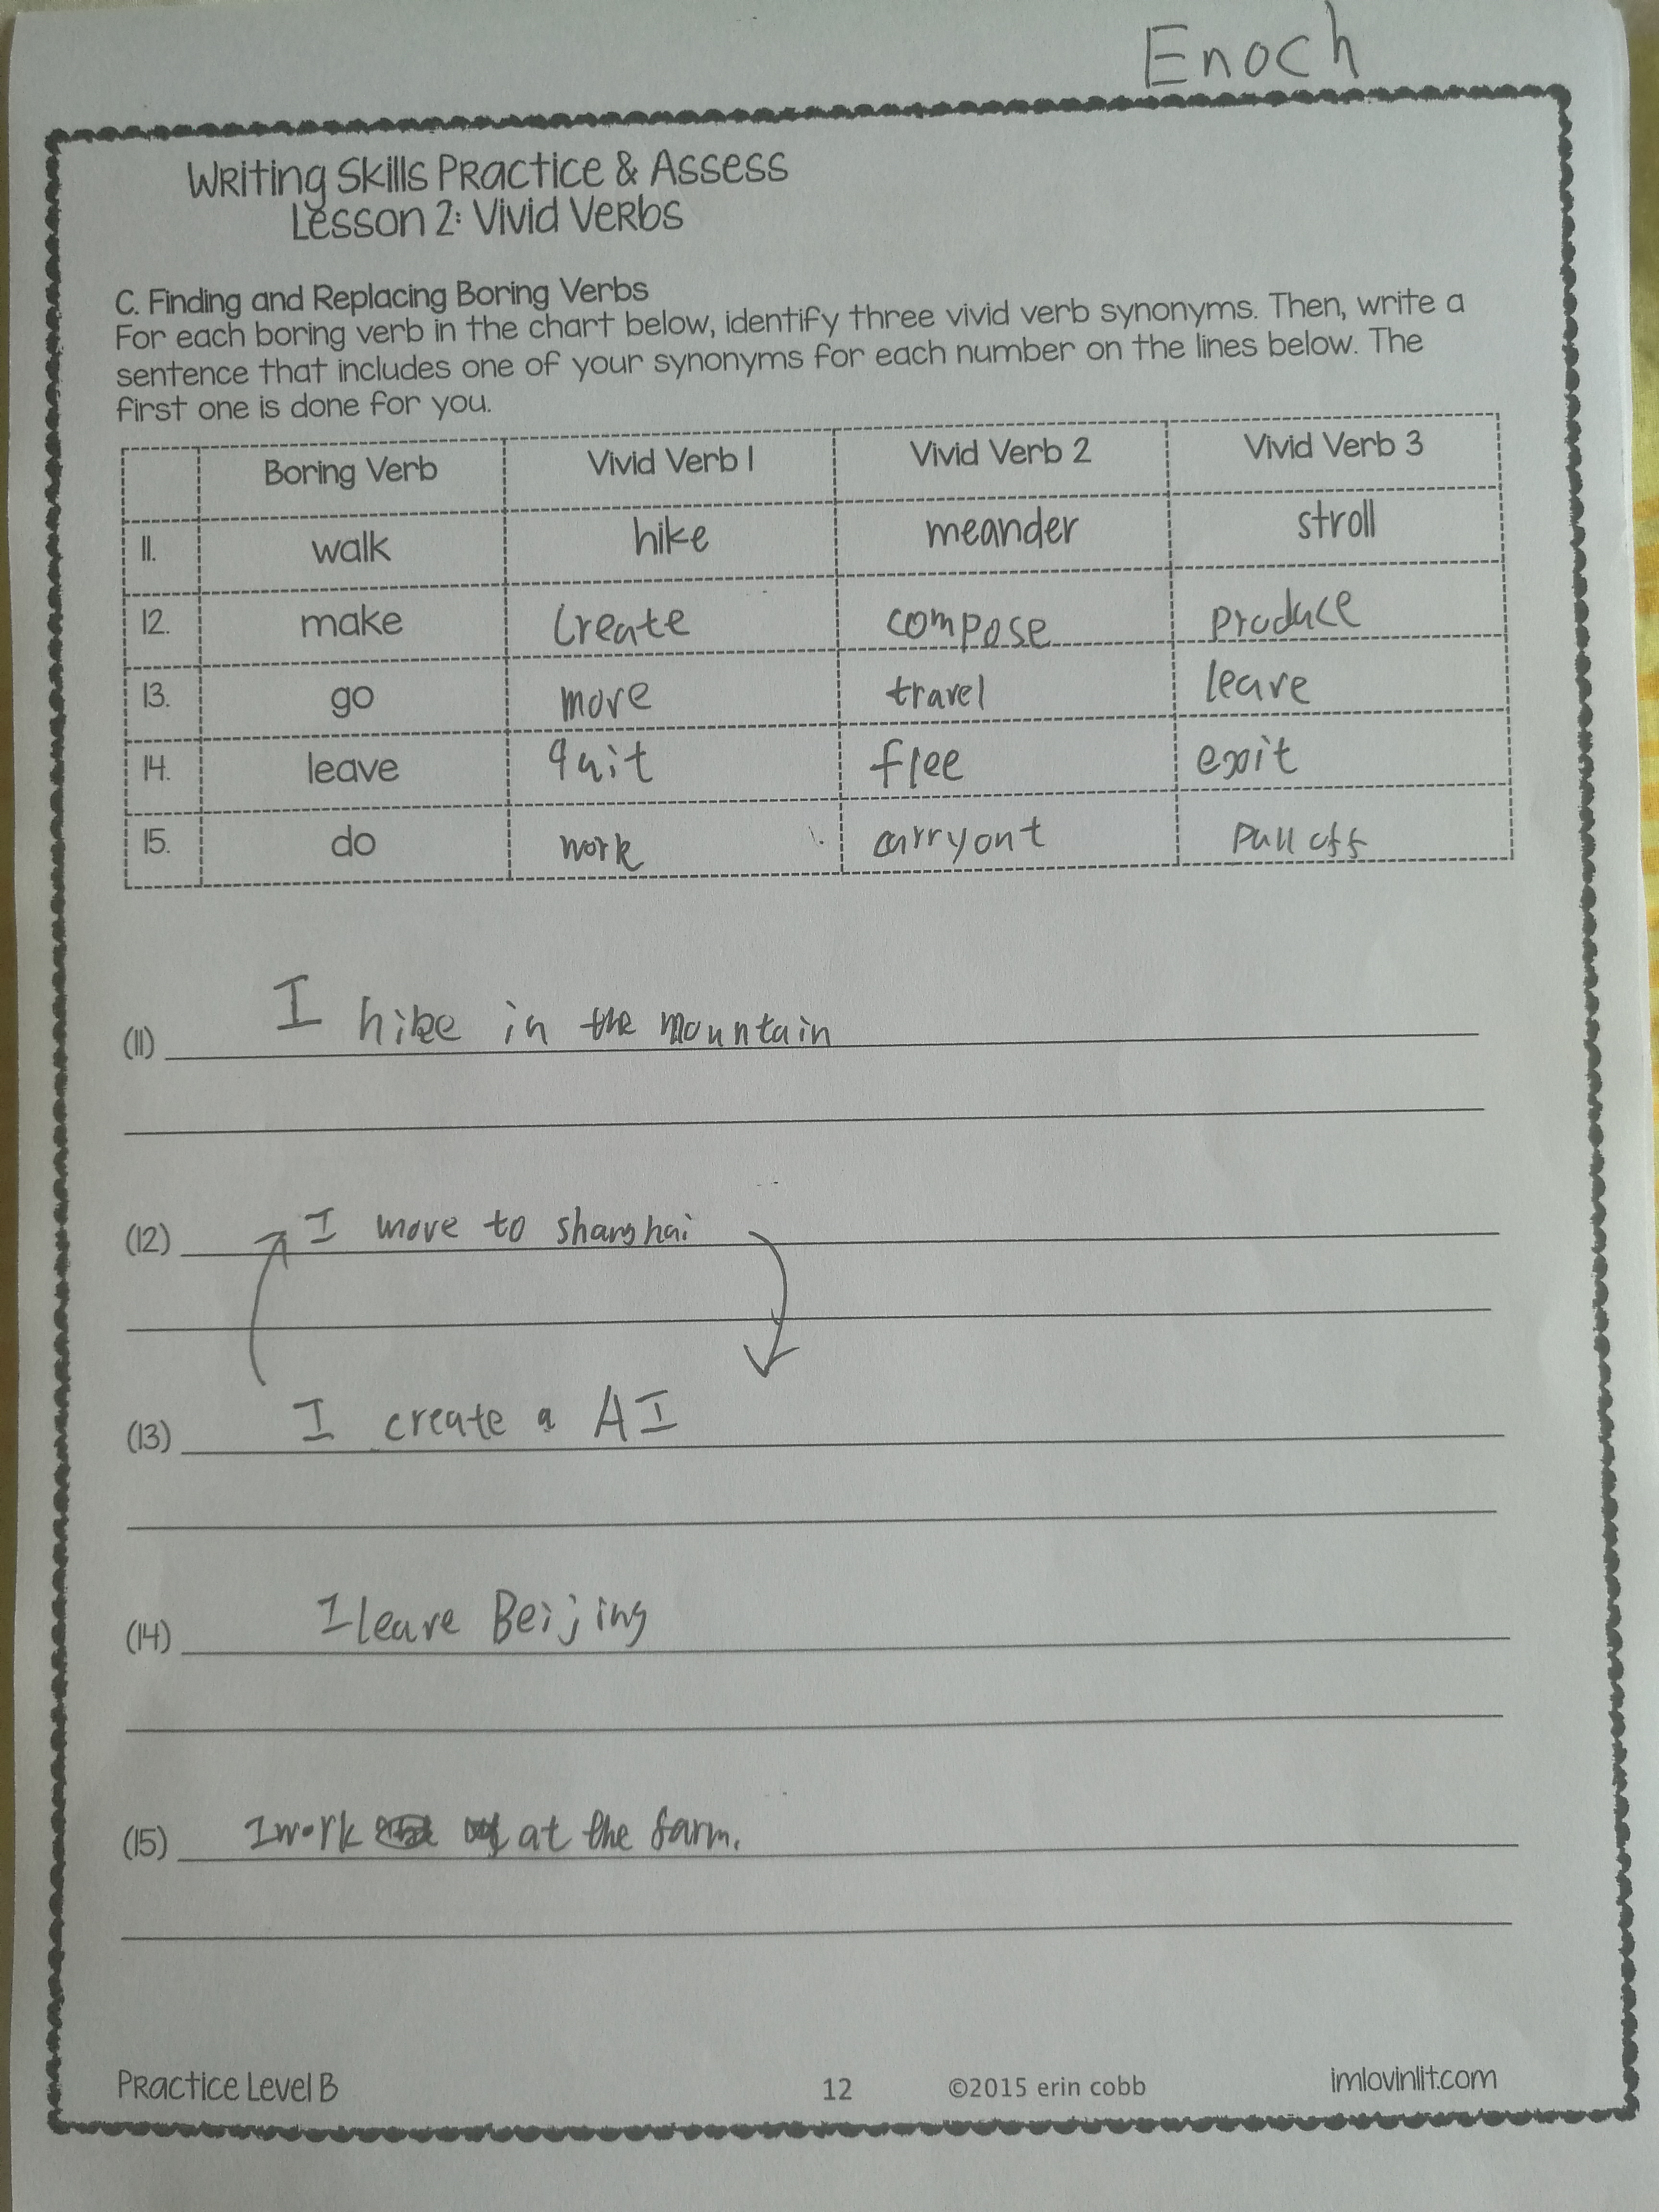 Enoch
Writing Skills Practice & Assess
Lesson 2: Vivid Verbs
C. Finding and Replacing Boring Verbs
For each boring verb in the chart below, identify three vivid verb synonyms. Then, write a
sentence that includes one of your synonyms for each number on the lines below. The
first one is done for you.
Boring Verb Vivid Verb 1 Vivid Verb 2 Vivid Verb 3
11. walk hike meander stroll
12. make create compose produce
13. go move travel leave
14. leave quit flee exit
15. do work carry out pull off
(11) I hike in the mountain
(12) I move to shanghai
(13) I create a AI
(14) I leave Beijing
(15) I work at the farm.
Practice Level B 12 ©2015 erin cobb imlovinlit.com